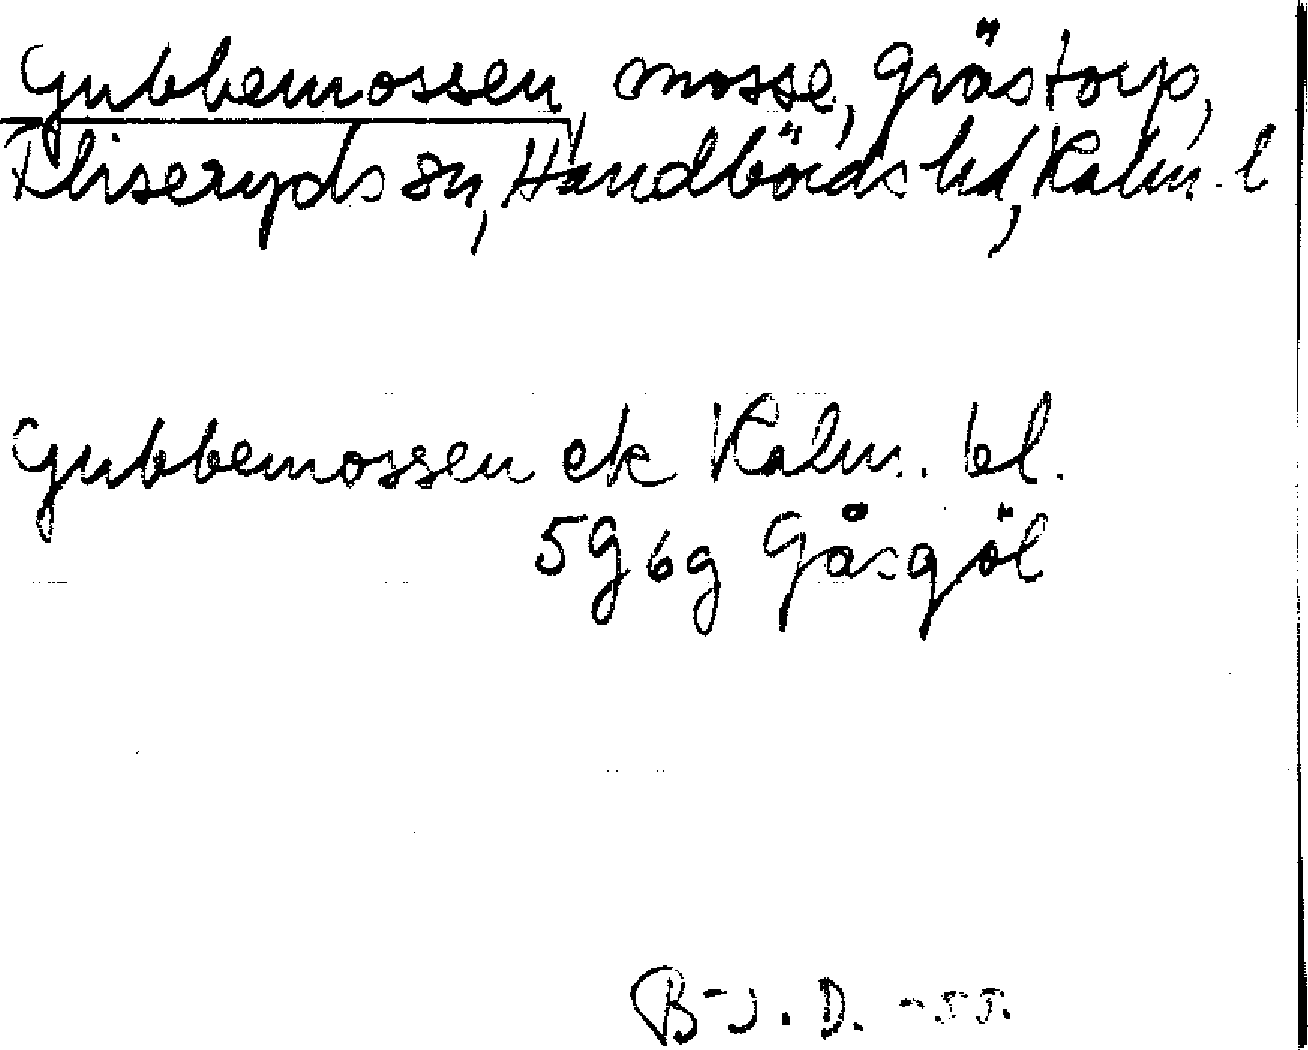 Gubbemossen, mosse, Grästorp,
Fliseryds sn, Handbörds hd, Kalm. l
Gubbemossen ek Kalm. bl.
5g 6g Gåsgöl
B-J. D. -55.